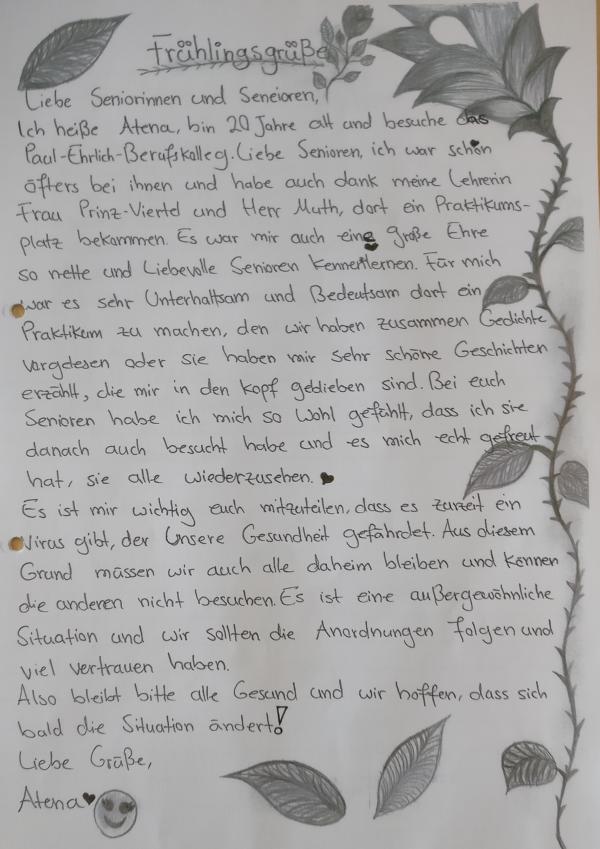 Frühlingsgrüße
Liebe Seniorinnen und Seneioren,
Ich heiße Atena, bin 20 Jahre alt und besuche das
Paul-Ehrlich-Berufskolleg. Liebe Senioren, ich war schon
öfters bei ihnen und habe auch dank meine Lehrerin
Frau Prinz-Viertel und Herr Muth, dort ein Praktikums-
platz bekommen. Es war mir auch eine große Ehre
so nette und Liebevolle Senioren Kennenlernen. Für mich
war es sehr Unterhaltsam und Bedeutsam dort ein
Praktikum zu machen, den wir haben zusammen Gedichte
vorgelesen oder sie haben mir sehr schöne Geschichten
erzählt, die mir in den Kopf geblieben sind. Bei euch
Senioren habe ich mich so Wohl gefühlt, dass ich sie
danach auch besucht habe und es mich echt gefreut
hat, sie alle wiederzusehen.
Es ist mir wichtig euch mitzuteilen, dass es zurzeit ein
Virus gibt, der Unsere Gesundheit gefährdet. Aus diesem
Grund müssen wir auch alle daheim bleiben und können
die anderen nicht besuchen. Es ist eine außergewöhnliche
Situation und wir sollten die Anordnungen folgen und
viel vertrauen haben.
Also bleibt bitte alle Gesund und wir hoffen, dass sich
bald die Situation ändert!
Liebe Grüße,
Atena